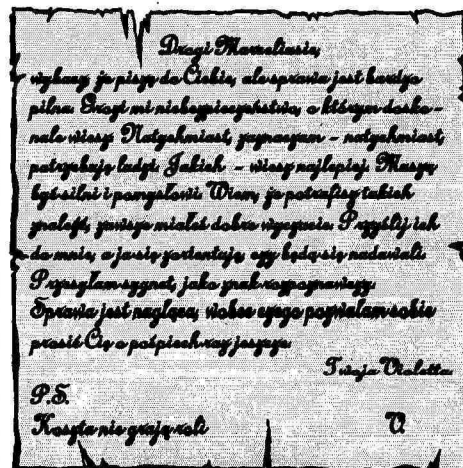 Drogi Marceliusie,
wybacz, że piszę do Ciebie, ale sprawa jest bardzo
pilna. Grozi mi niebezpieczeństwo, o którym dosko-
nale wiesz. Natychmiast, zaznaczam - natychmiast,
potrzebuję ludzi. Jakich - wiesz najlepiej. Muszą
być silni i pomysłowi. Wiem, że potrafisz takich
znaleźć, zawsze miałeś dobre wyczucie. Przyślij ich
do mnie, a ja się zorientuję, czy będą się nadawali.
Przesyłam sygnet, jako znak rozpoznawczy.
Sprawa jest nagląca, wobec czego pozwalam sobie
prosić Cię o pośpiech raz jeszcze.
Twoja Violetta.
P.S.
Koszta nie grają roli V.